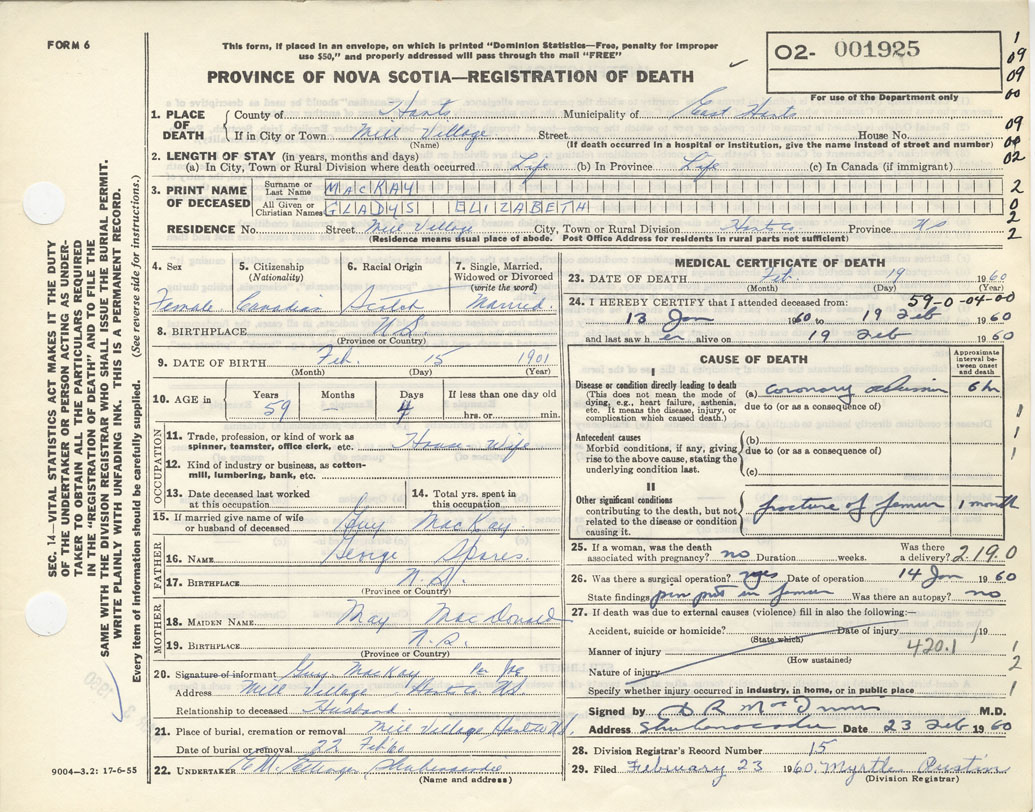 FORM 6
This form, if placed in an envelope, on which is printed "Dominion Statistics—Free, penalty for improper
use $50," and properly addressed will pass through the mail "FREE"
O2- 001925
For use of the Department only
PROVINCE OF NOVA SCOTIA—REGISTRATION OF DEATH
1
09
09
00
1. PLACE OF DEATH County of Hants Municipality of East Hants
If in City or Town Mill Village Street House No.
(Name) (If death occurred in a hospital or institution, give the name instead of street and number)
09
02
2. LENGTH OF STAY (in years, months and days)
(a) In City, Town or Rural Division where death occurred Life (b) In Province Life (c) In Canada (if immigrant)
3. PRINT NAME OF DECEASED
Surname or Last Name MACKAY
All Given or Christian Names GLADYS ELIZABETH
2
0
2
2
RESIDENCE No. Street Mill Village City, Town or Rural Division Hants Co. Province NS
(Residence means usual place of abode. Post Office Address for residents in rural parts not sufficient)
4. Sex 5. Citizenship (Nationality) 6. Racial Origin 7. Single, Married, Widowed or Divorced (write the word)
Female Canadian Scotch Married
8. BIRTHPLACE N.S.
(Province or Country)
9. DATE OF BIRTH Feb. 15 1901
(Month) (Day) (Year)
10. AGE in Years Months Days If less than one day
59 — 4 hrs. or min.
OCCUPATION
11. Trade, profession, or kind of work as
spinner, teamster, office clerk, etc. House Wife
12. Kind of industry or business, as cotton-
mill, lumbering, bank, etc.
13. Date deceased last worked
at this occupation
14. Total yrs. spent in
this occupation
15. If married give name of wife
or husband of deceased Guy MacKay
FATHER
16. NAME George Spares.
17. BIRTHPLACE N.S.
(Province or Country)
MOTHER
18. MAIDEN NAME May MacDonald
19. BIRTHPLACE N.S.
(Province or Country)
20. Signature of informant Guy MacKay
Address Mill Village Hants Co NS
Relationship to deceased Husband
21. Place of burial, cremation or removal Mill Village Hants Co NS.
Date of burial or removal 22 Feb 60
22. UNDERTAKER Shubenacadie
(Name and address)
MEDICAL CERTIFICATE OF DEATH
23. DATE OF DEATH Feb. 19 1960
(Month) (Day) (Year)
24. I HEREBY CERTIFY that I attended deceased from: 59-0-04-00
13 Jan 1960 to 19 Feb 1960
and last saw her alive on 19 Feb 1960
CAUSE OF DEATH
Approximate interval between onset and death
I
Disease or condition directly leading to death
(This does not mean the mode of
dying, e.g., heart failure, asthenia,
etc. It means the disease, injury, or
complication which caused death.)
(a) coronary 6 hr
due to (or as a consequence of)
Antecedent causes
Morbid conditions, if any, giving
rise to the above cause, stating the
underlying condition last.
(b)
due to (or as a consequence of)
(c)
1
1
1
II
Other significant conditions
contributing to the death, but not
related to the disease or condition
causing it.
fracture of femur 1 month
25. If a woman, was the death
associated with pregnancy? no Duration weeks. Was there
a delivery? 2.19.0
26. Was there a surgical operation? yes Date of operation 14 Jan 1960
State findings pin put in femur Was there an autopsy? no
27. If death was due to external causes (violence) fill in also the following:—
Accident, suicide or homicide? Date of injury 19
(State which)
Manner of injury 420.1
(How sustained)
Nature of injury
Specify whether injury occurred in industry, in home, or in public place
1
2
1
Signed by M.D.
Address Shubenacadie Date 23 Feb 1960
28. Division Registrar's Record Number 15
29. Filed February 23 1960. Myrtle
(Division Registrar)
SEC. 14—VITAL STATISTICS ACT MAKES IT THE DUTY
OF THE UNDERTAKER OR PERSON ACTING AS UNDER-
TAKER TO OBTAIN ALL THE PARTICULARS REQUIRED
IN THE "REGISTRATION OF DEATH" AND TO FILE THE
SAME WITH THE DIVISION REGISTRAR WHO SHALL ISSUE THE BURIAL PERMIT.
WRITE PLAINLY WITH UNFADING INK. THIS IS A PERMANENT RECORD.
Every item of information should be carefully supplied. (See reverse side for instructions.)
9004—3.2: 17-6-55